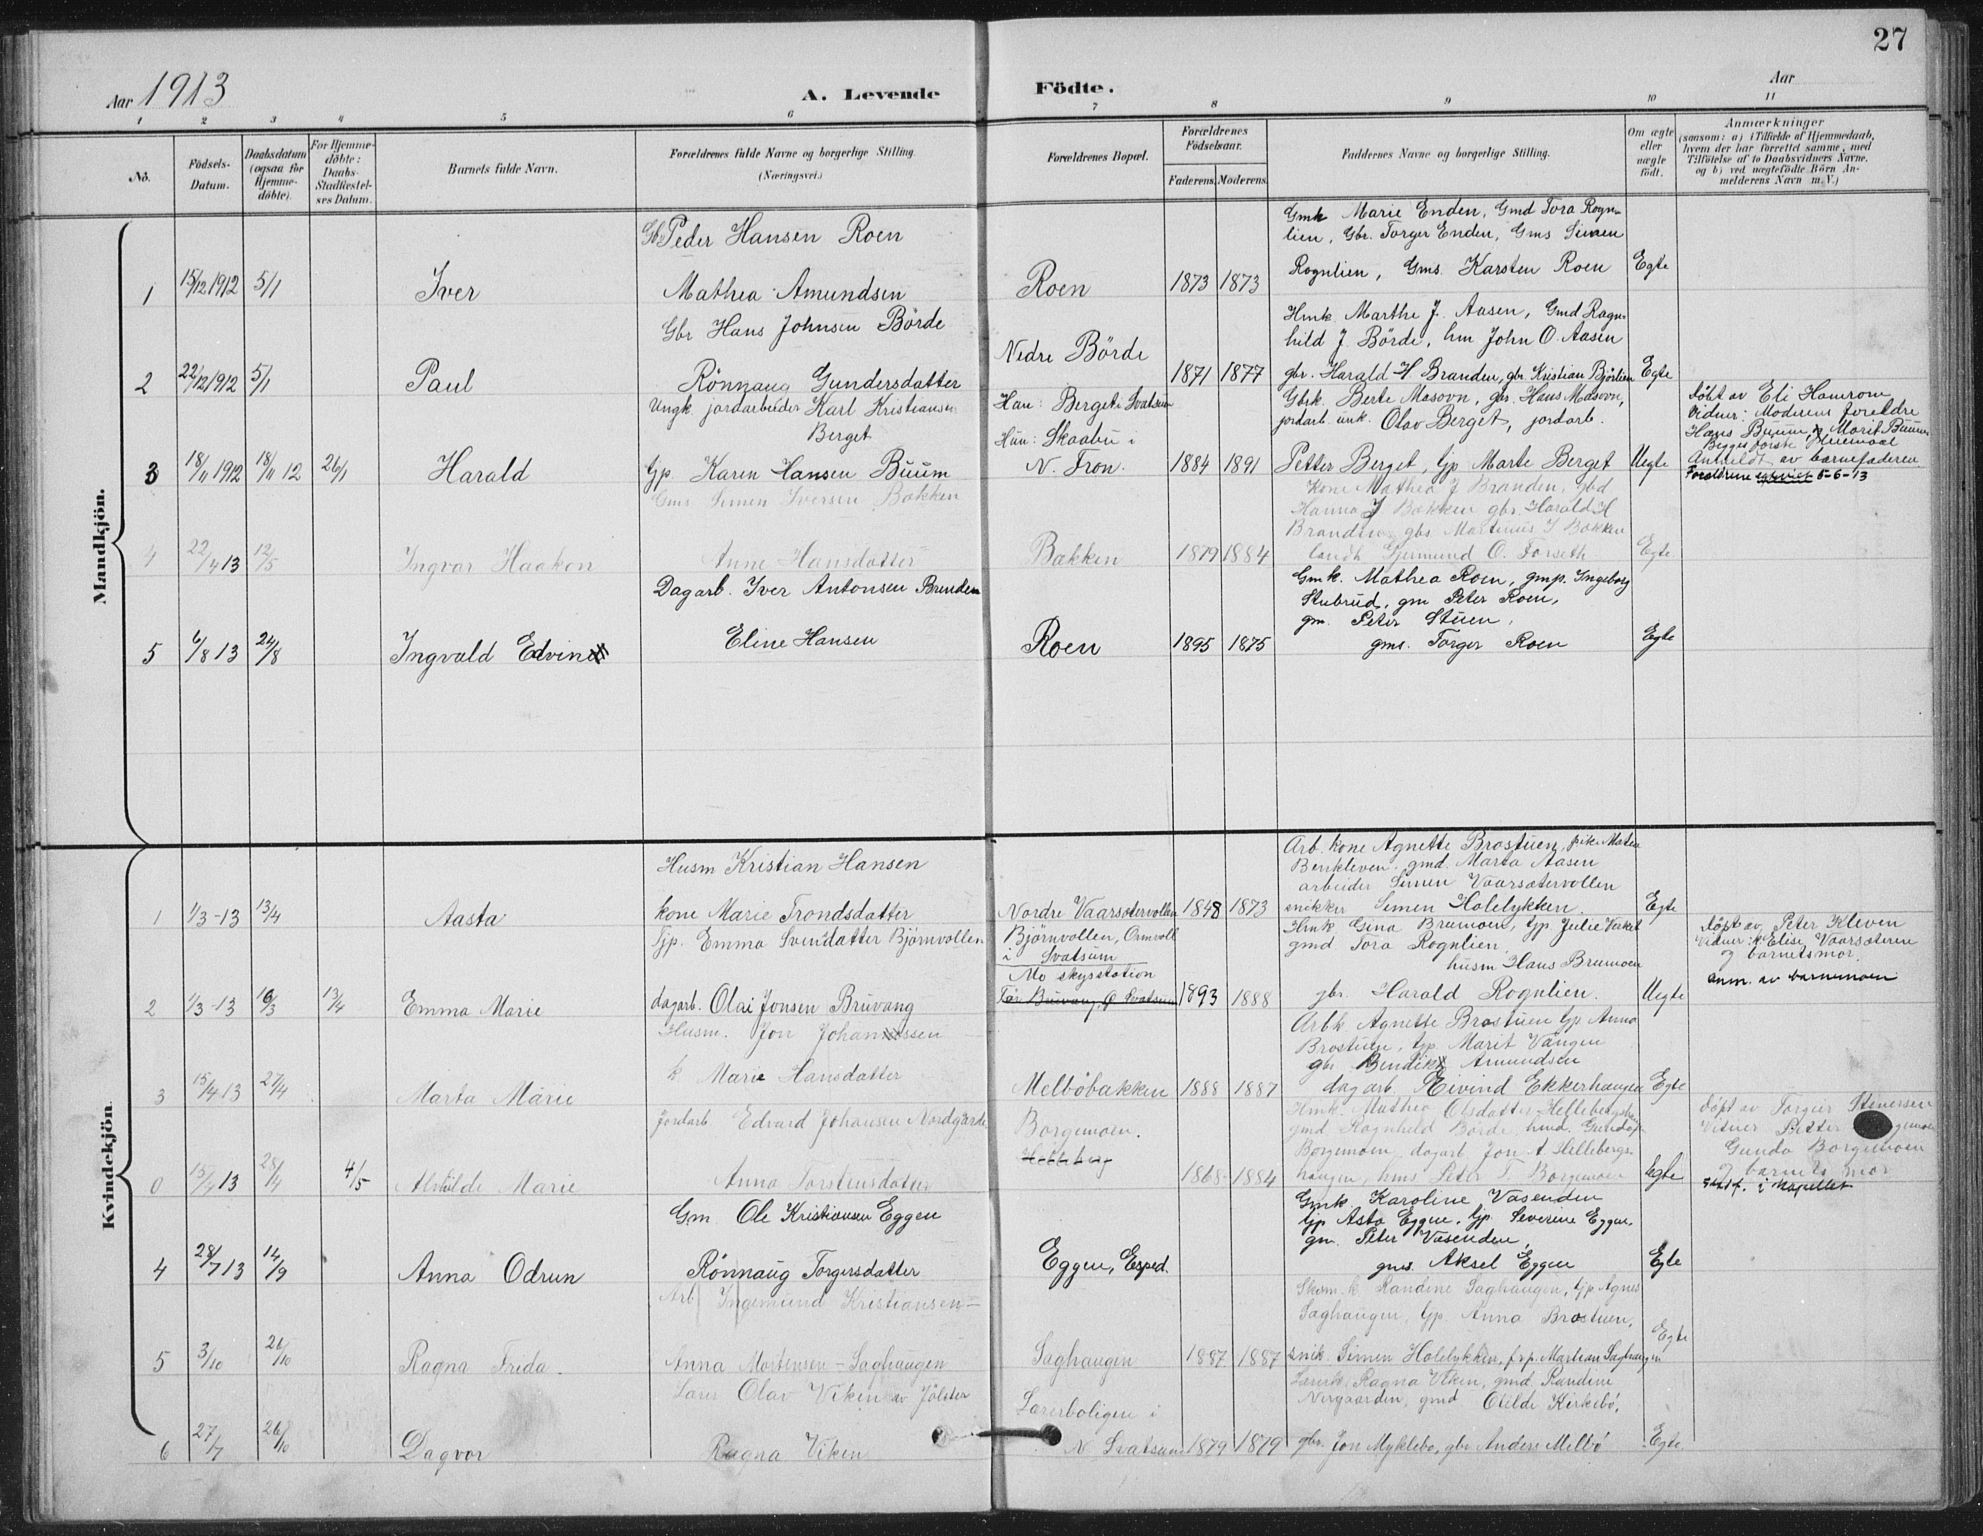 27
Aar 1913
A. Levende
Födte.
Aar
1 2 3 4 5 6 7 8 9 10 11
No.
Födsels-Datum.
Daabsdatum (ogsaa for Hjemme-döbte).
For Hjemme-döbte: Daabs-Stadfæstel-ses Datum.
Barnets fulde Navn.
Forældrenes fulde Navne og borgerlige Stilling. (Næringsvei.)
Forældrenes Bopæl.
Forældrenes Födselsaar.
Faderens. Moderens.
Faddernes Navne og borgerlige Stilling.
Om ægte eller uægte födt.
Anmærkninger
(saasom: a) i Tilfælde af Hjemmedaab,
hvem der har forrettet samme, med
Tilföielse af to Daabsvidners Navne,
og b) ved uægtefödte Börn An-
melderens Navn m. V.)
Mandkjön.
Gb. Peder Hansen Roen
Gmk Marie Enden, Gmd Tora Rogn-
lien, Gbr. Torger Enden, Gms Simen
1 15/12 1912 5/1 Iver Mathea Amundsen Roen 1873 1873 Rognlien, Gms. Karsten Roen Egte
Gbr Hans Johnsen Börde
Hmk. Marthe J. Aasen, Gmd Ragn-
hild J. Börde, hm John O. Aasen
Nedre Börde
2 22/12 1912 5/1 Paul Rönnaug Gundersdatter 1871 1877 gbr. Harald H Branden, gbr Kristian Björlien Egte
Ungk jordarbeider Karl Kristiansen Han: Berget i Svatsum Gbrk. Berte Mosovn, gbr. Hans Mosovn, döbt av Eli Hamrom
Berget Hun: Skaabu i jordarb. unk. Olav Berget, jordarb. Vidner: Moderens foreldre
Hans Buum, Marit Buum
Begges första
3 18/11 1912 18/11 12 26/1 Harald Gp. Karen Hansen Buum N. Fron. 1884 1891 Petter Berget, Gp Marte Berget Uegte Anmeldt av barnefaderen
Foreldrene 5-6-13
Gms Simen Iversen Bakken
Kone Mathea J Branden, gbd
Hanna J Bakken gbr. Harald H
Branden, gbs Martinus I Bakken
4 22/4 13 12/5 Ingvar Haakon Anne Hansdatter Bakken 1879 1884 landh Gjermund O. Forseth Egte
Dagarb. Iver Antonsen Brenden
Gmk. Mathea Roen, gmp. Ingeborg
Stubrud, gm Peter Roen,
gm. Peter Stuen,
5 6/8 13 24/8 Ingvald Edvin Eline Hansen Roen 1895 1875 gms. Torger Roen Egte
Kvindekjön.
Husm Kristian Hansen
Arb. kone Agnette Brostuen, pike Matea
Benkleven, gmd. Marta Aasen
arbeider Simen Vaarsætervollen
1 1/3-13 13/4 Aasta kone Marie Trondsdatter Nordre Vaarsætervollen 1848 1873 snikker Simen Holelykken Egte
Tjp. Emma Svendsdatter Björnvollen Björnvollen, Ormvoll Hmk Gina Brumoen, Gp. Julie Verket döpt av Peter Kleven
i Svatsum gmd Tora Rognlien Vidner: k Elise Vaarsæteren
Mo skysstation husm Hans Brumoen og barnets mor.
2 1/3-13 16/3 13/4 Emma Marie dagarb. Olai Jonsen Bruvang Far Bruvang, Ö Svatsum 1893 1888 gbr. Harald Rognlien. Uegte anm. av barnemoren
Husm. Jon Johanssen
Arbk Agnette Brostuen Gp Anna
Brostuen, Gp. Marit Vangen
gbr Bendik Amundsen
3 15/4 13 27/4 Marta Marie k Marie Hansdatter Melböbakken 1888 1887 dagarb Eivind Ekkerhaugen Egte
Jordarb Edvard Johansen Nordgårde Borgemoen. Hmk. Mathea Olsdatter Hellebergshaugen döpt av Torgeir Steversen
Helleberg gmd Ragnhild Börde, hmd. Gunda Vidner Petter
Borgemoen, dagarb Jon A Hellebergs- Gunda Borgemoen
0 15/4 13 28/4 4/5 Alvilde Marie Anna Torstensdatter 1868 1884 haugen, hms Peter T. Borgemoen Egte og barnets mor
Stadf. i Kapellet
Gm. Ole Kristiansen Eggen
Gmk Karoline Vasenden
Gp Asta Eggen, Gp. Severine Eggen,
gm. Peter Vasenden,
4 28/7 13 14/9 Anna Odrun Rönnaug Torgersdatter Eggen, Esped. gms. Aksel Eggen Egte
Arb Ingemund Kristiansen
Skom. k Randine Saghaugen, Gp Agnes
Saghaugen, Gp. Anna Brostuen,
5 3/10 26/10 Ragna Frida. Anna Mortensen-Saghaugen Saghaugen 1887 1887 snik. Simen Holelykken, Martean Saghaugen Egte
Lærer Olav Viken av Jölster
Lærerk. Ragna Viken, gmd Randine
Lærerboligen i Nergaarden, gmd Otilde Kirkebö,
6 27/7 26/10 Dagvor Ragna Viken N. Svatsum 1879 1879 gbr. Jon Myklebo, gbr Anders Melbö Egte